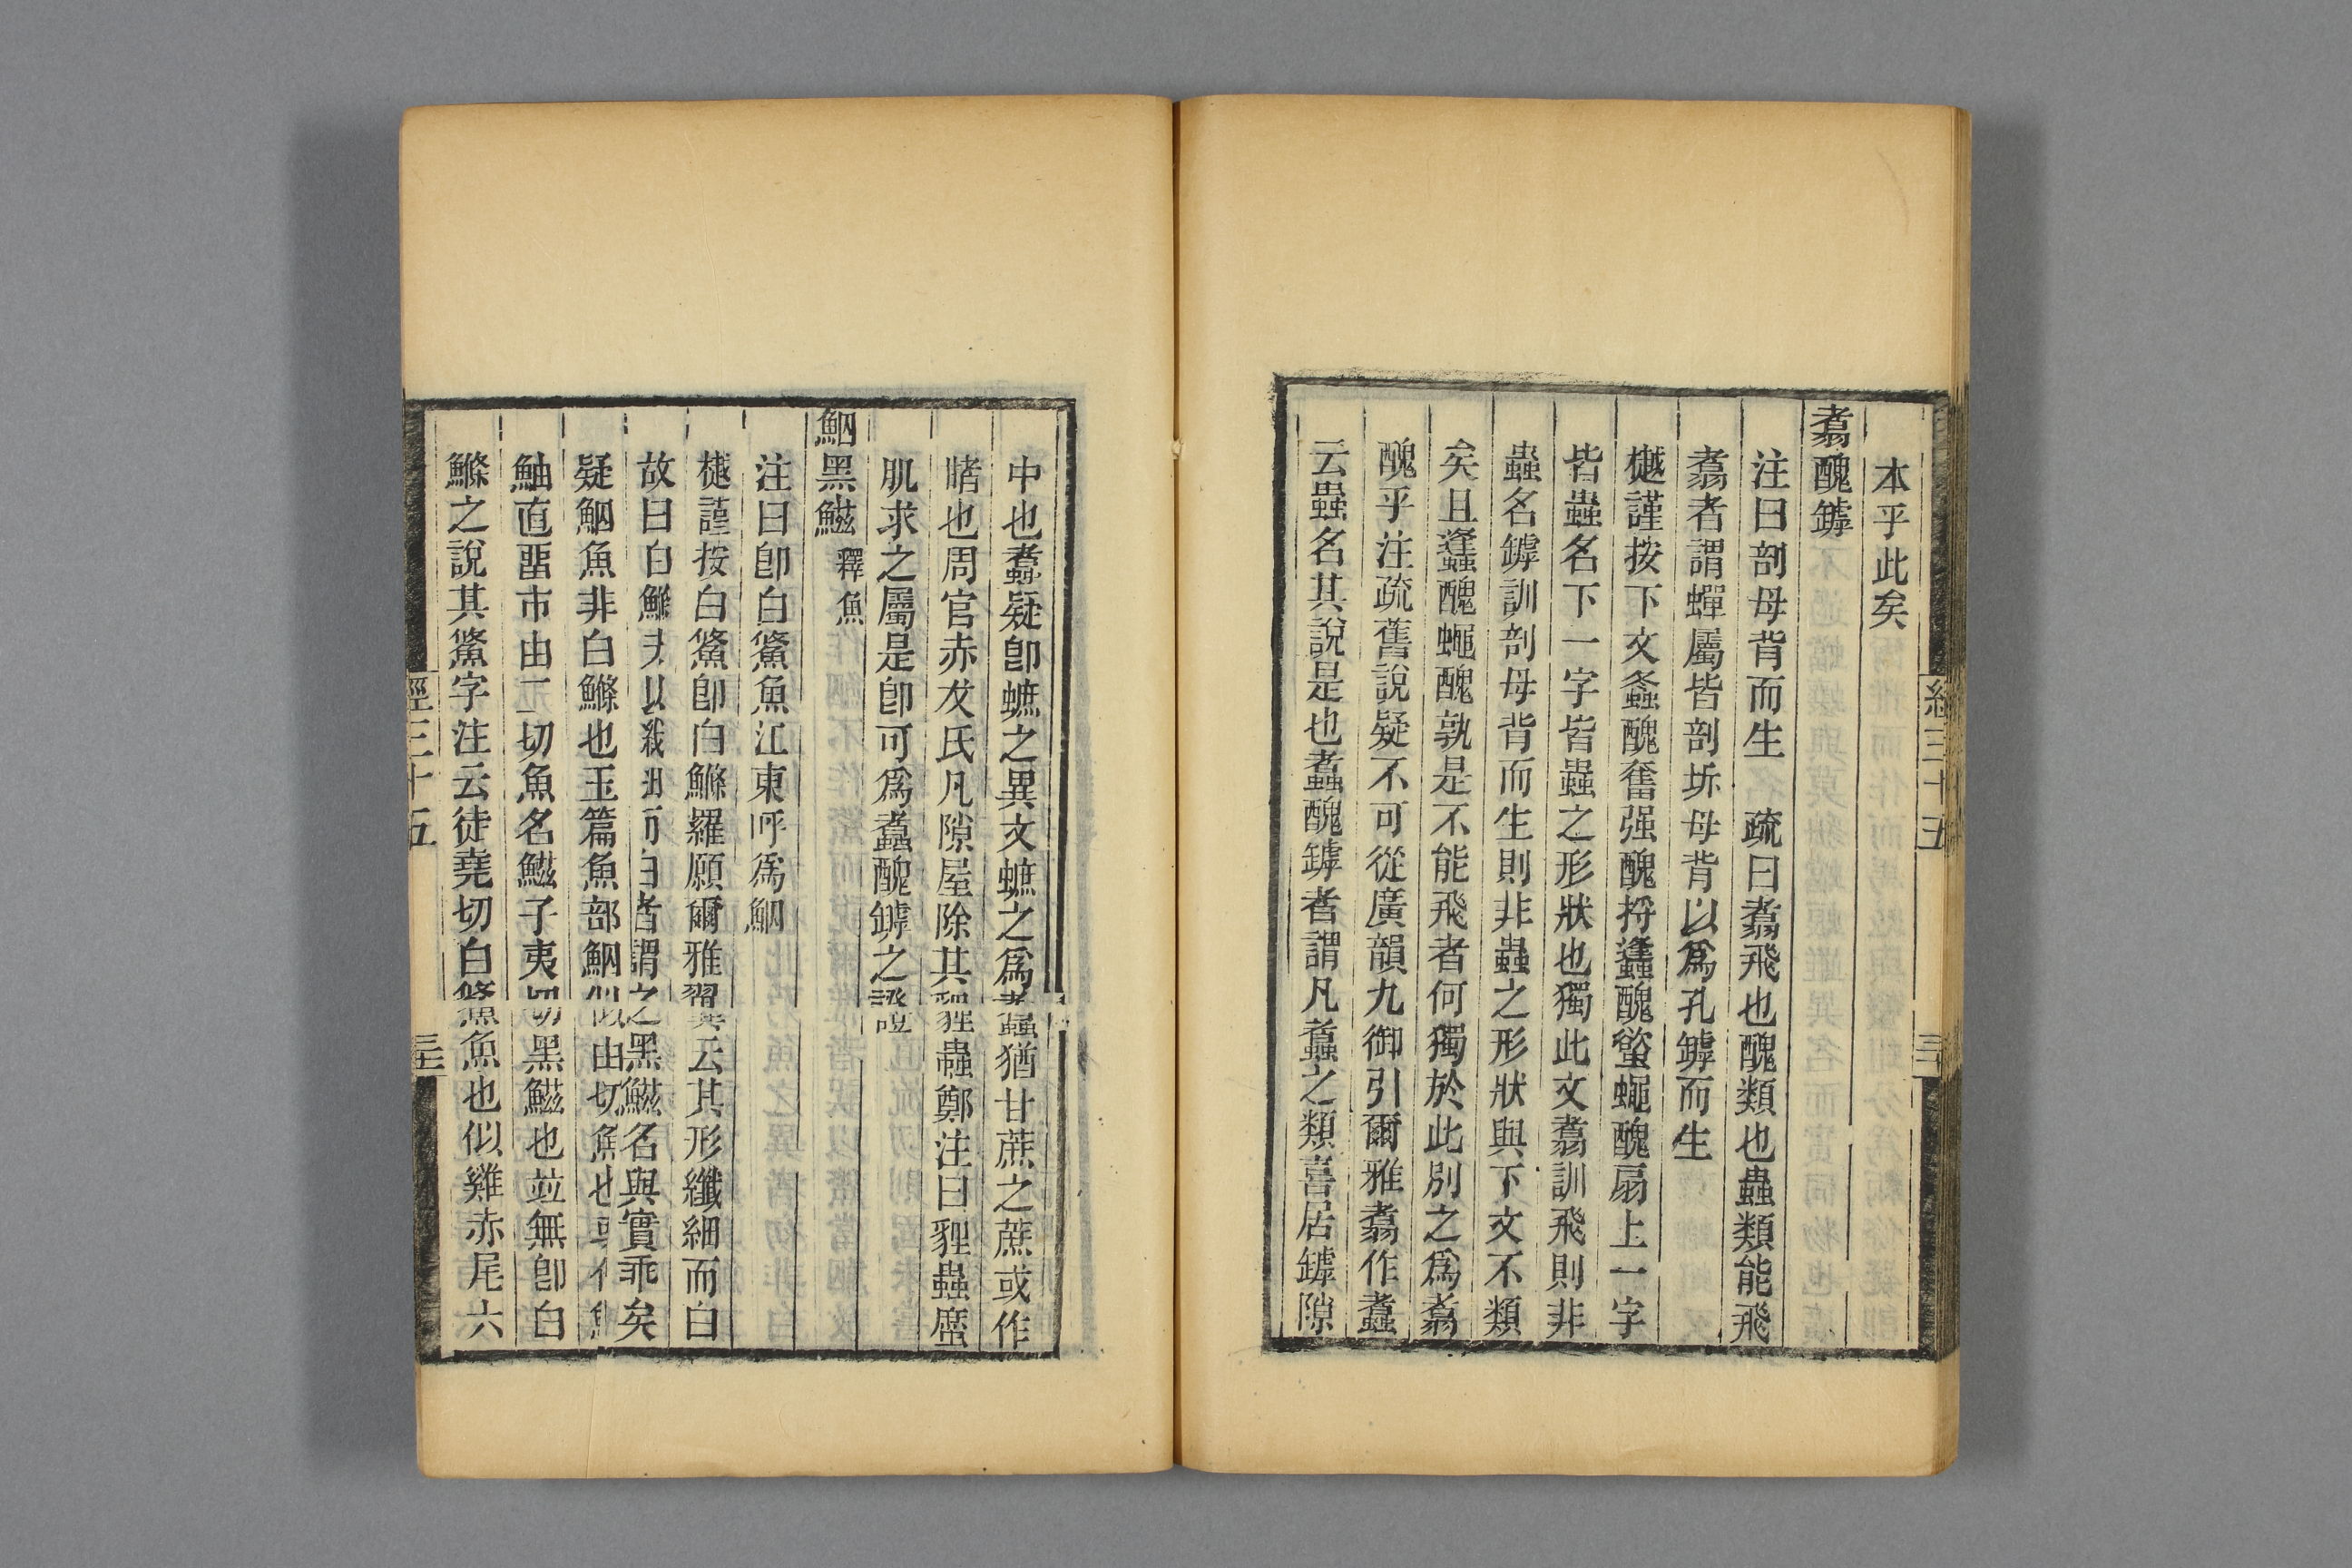 本乎此矣
翥醜罅
注曰剖母背而生　疏曰翥飛也醜類也蟲類能飛
翥者謂蟬屬皆剖坼母背以爲孔罅而生
樾謹按下文螽醜奮强醜捋蠭醜螸蠅醜扇上一字
皆蟲名下一字皆蟲之形狀也獨此文翥訓飛則非
蟲名罅訓剖母背而生則非蟲之形狀與下文不類
矣且蠭醜蠅醜孰是不能飛者何獨於此別之爲翥
醜乎注疏舊說疑不可從廣韻九御引爾雅翥作䘄
云蟲名其說是也䘄醜罅者謂凡䘄之類喜居罅隙
中也䘄疑卽蟅之異文蟅之爲䘄猶甘蔗之蔗或作
䊏也周官赤犮氏凡隙屋除其貍蟲鄭注曰貍蟲䗪
肌求之屬是卽可爲䘄醜罅之證
鮂黑鰦　釋魚
注曰卽白鯈魚江東呼爲鮂
樾謹按白鯈卽白鰷羅願爾雅翼云其形纖細而白
故曰白鰷夫以 而白者謂之黑鰦名與實乖矣
疑鮂魚非白鰷也玉篇魚部鮂似由切魚也
鮋直畱市由二切魚名鰦子夷切黑鰦也竝無卽白
鰷之說其鯈字注云徒堯切白鯈魚也似雞赤尾六
經三十五
三十